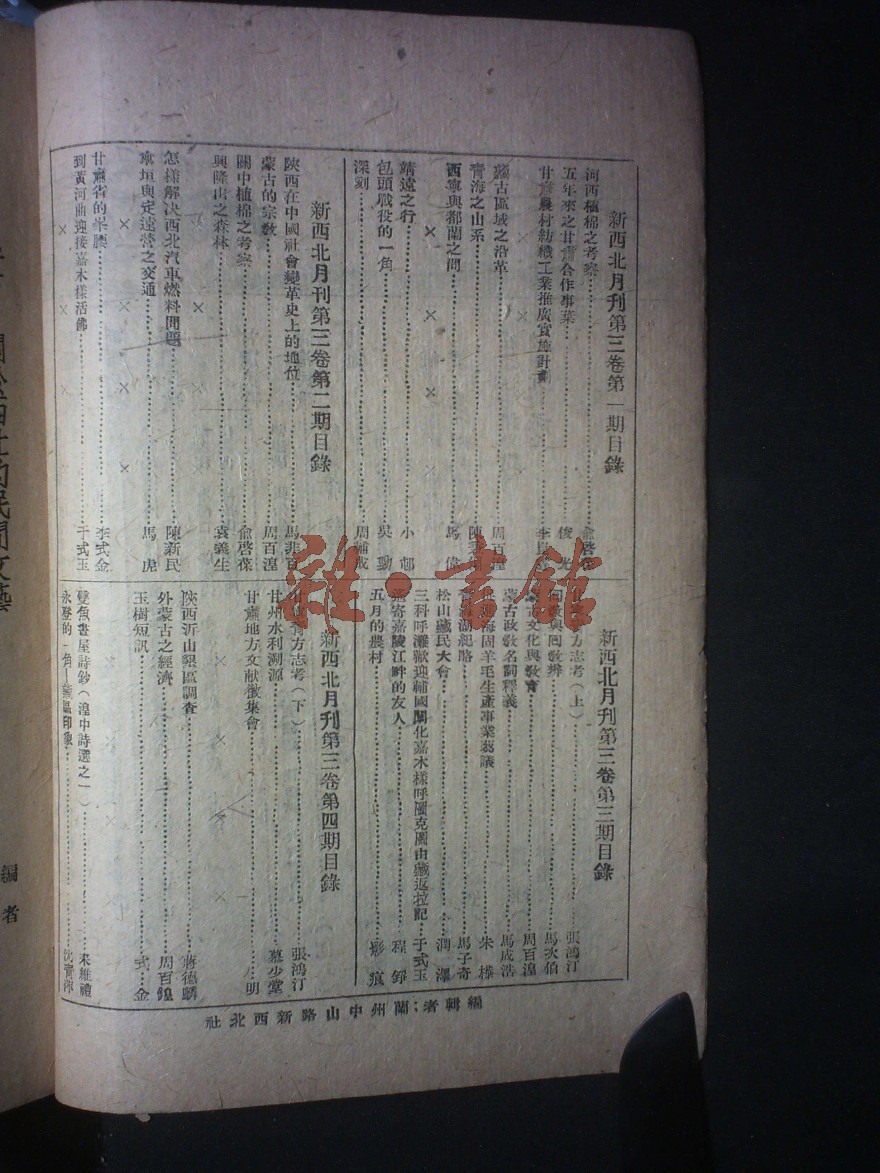 新西北月刊第三卷第一期目錄
河西植棉之考察 俞啓葆
五年來之甘肅合作事業 俊光
甘肅農村紡織工業推廣實施計劃 李
蒙古區域之沿革 周百鍠
青海之山系 陳
西寧與都蘭之間 馬偉
靖遠之行 小邨
包頭戰役的一角 吳勃
深刻 周輔成
新西北月刊第三卷第二期目錄
陝西在中國社會變革史上的地位 馬非百
蒙古的宗教 周百鍠
關中植棉之考察 俞啓葆
興隆山之森林 袁義生
怎樣解决西北汽車燃料問題 陳新民
車垣與定遠營之交通 馬虎
甘肅省的峯腰 李式金
到黃河曲迎接嘉木樣活佛 于式玉
新西北月刊第三卷第三期目錄
方志考(上) 張鴻汀
回教與回教辨 馬次伯
蒙古文化與教育 周百鍠
蒙古政教名詞釋義 馬成浩
海固羊毛生產事業芻議 朱樺
青海湖紀略 馬子奇
松山藏民大會 潤澤
三科呼灘歡迎輔國闡化嘉木樣呼圖克圖由藏返拉記 于式玉
遙寄嘉陵江畔的友人 程錚
五月的農村 影痕
新西北月刊第三卷第四期目錄
甘寧青方志考(下) 張鴻汀
甘州水利溯源 慕少堂
甘肅地方文献徵集會 明
陝西沂山墾區調查 蔣德麟
外蒙古之經濟 周百鍠
玉樹短訊 式金
雙魚書屋詩鈔(湟中詩選之一) 來維禮
永登的一角—藥區印象 沈
編輯者:蘭州中山路新西北社
的民間文藝
編者
雜·書館